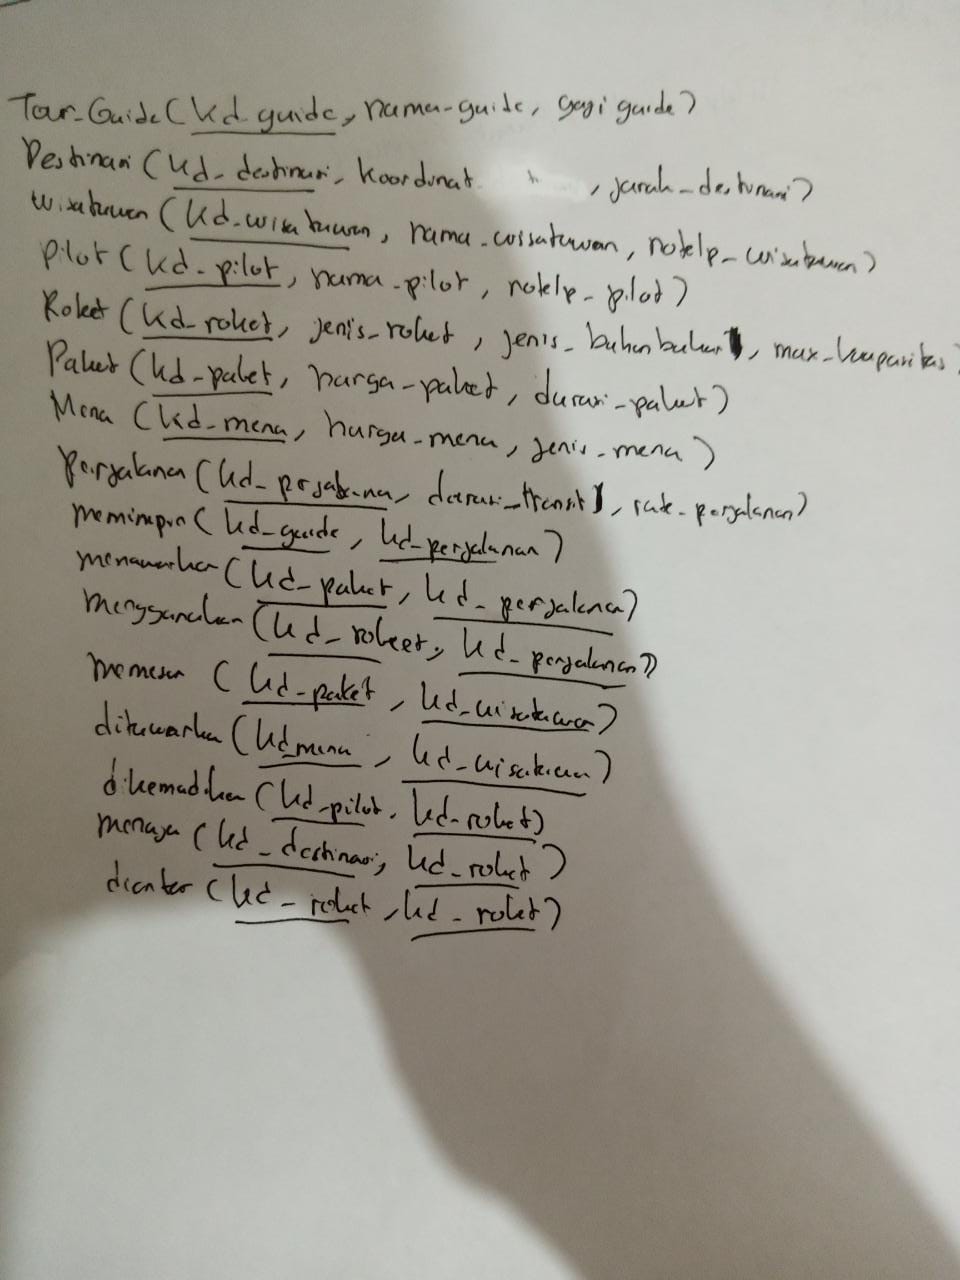 Tour_Guide (kd_guide, nama_guide, gaji guide)
Destinasi (kd_destinasi, koordinat , jarak_destinasi)
Wisatawan (kd_wisatawan, nama_wisatawan, notelp_wisatawan)
Pilot (kd_pilot, nama_pilot, notelp_pilot)
Roket (kd_roket, jenis_roket, jenis_bahanbakar, max_kapasitas)
Paket (kd_paket, harga_paket, durasi_paket)
Menu (kd_menu, harga_menu, jenis_menu)
Perjalanan (kd_perjalanan, durasi_transit, rute_perjalanan)
memimpin (kd_guide, kd_perjalanan)
menawarkan (kd_paket, kd_perjalanan)
menggunakan (kd_roket, kd_perjalanan)
memesan (kd_paket, kd_wisatawan)
ditawarkan (kd_menu, kd_wisatawan)
dikemudikan (kd_pilot, kd_roket)
menuju (kd_destinasi, kd_roket)
diantar (kd_roket, kd_roket)